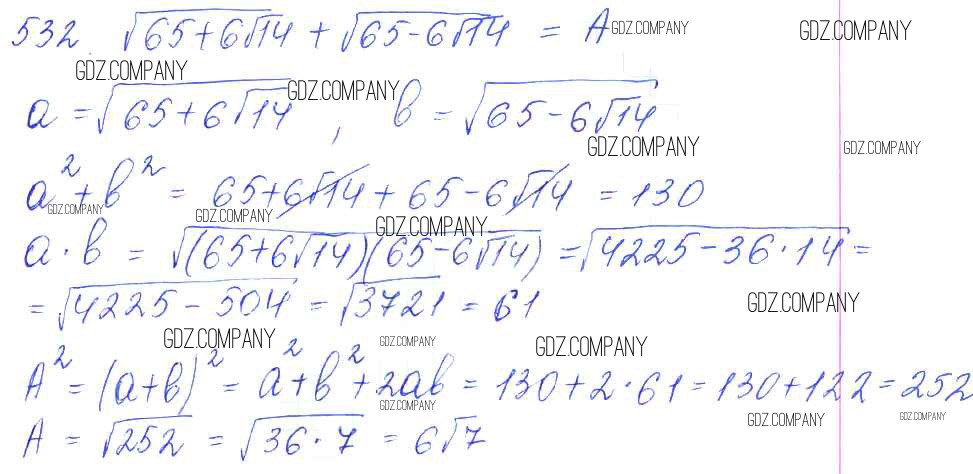 532. √(65+6√14) + √(65-6√14) = A GDZ.COMPANY GDZ.COMPANY
GDZ.COMPANY
a = √(65+6√14), b = √(65-6√14) GDZ.COMPANY
GDZ.COMPANY GDZ.COMPANY
a² + b² = 65+6√14 + 65-6√14 = 130
GDZ.COMPANY GDZ.COMPANY GDZ.COMPANY
a · b = √((65+6√14)(65-6√14)) = √(4225-36·14) =
= √(4225-504) = √3721 = 61 GDZ.COMPANY
GDZ.COMPANY GDZ.COMPANY GDZ.COMPANY
A² = (a+b)² = a²+b²+2ab = 130+2·61 = 130+122 = 252
GDZ.COMPANY GDZ.COMPANY GDZ.COMPANY
A = √252 = √(36·7) = 6√7